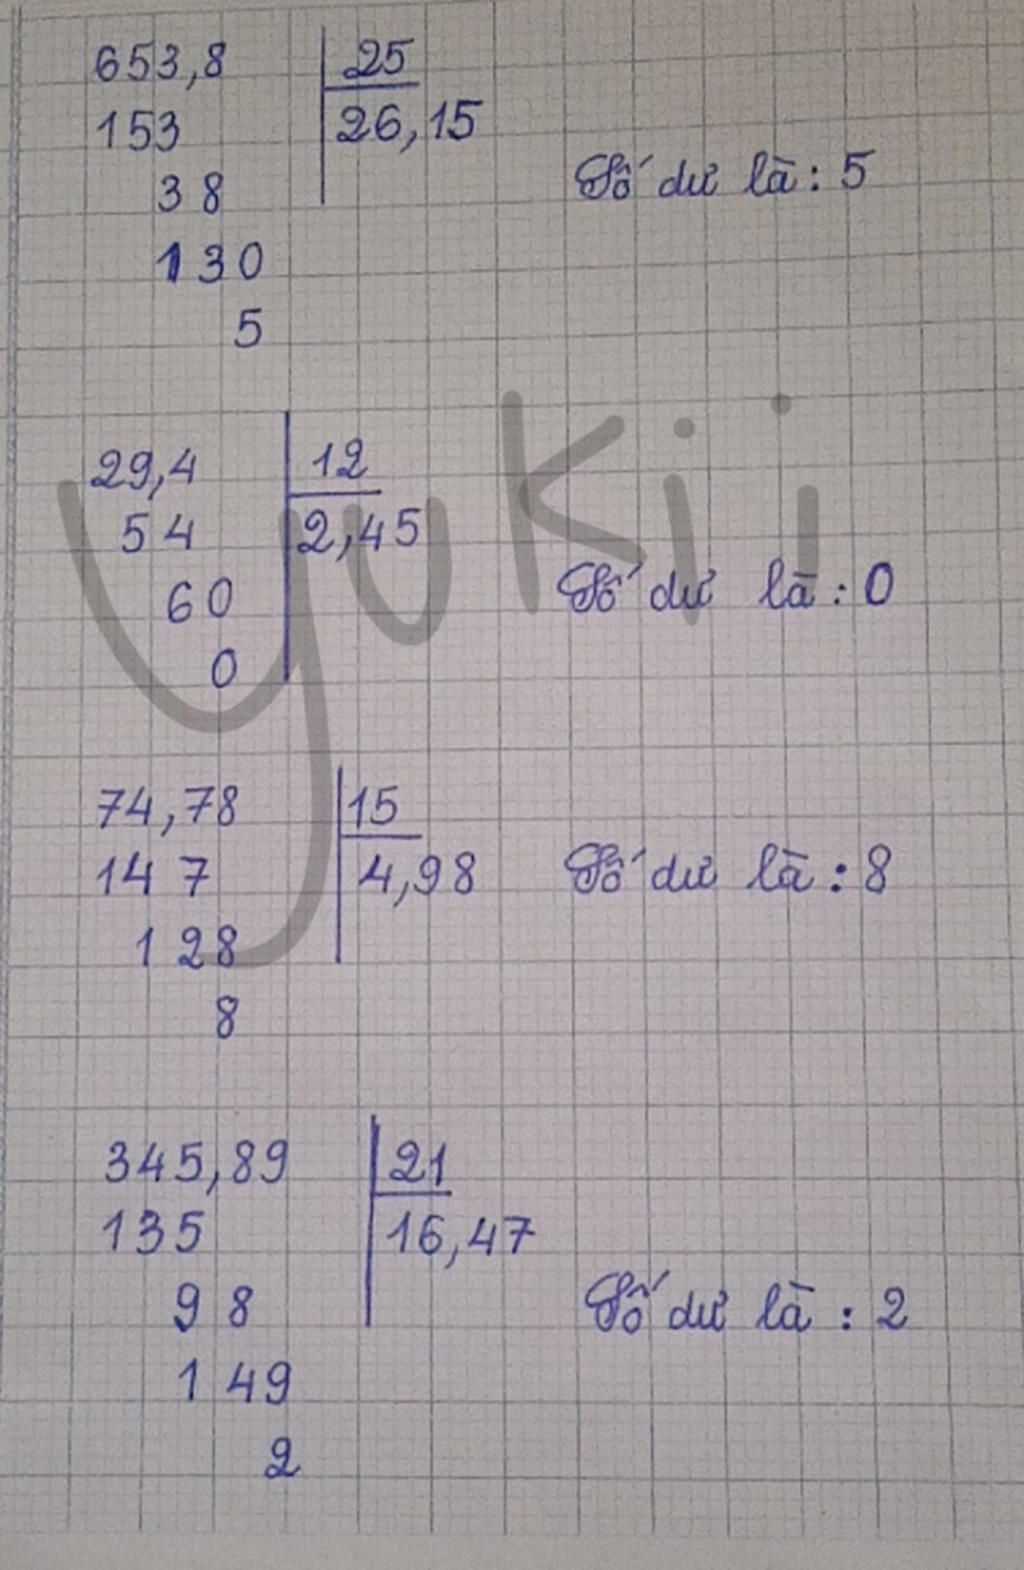 653,8 25
153 26,15
Số dư là: 5
38
130
5
29,4 12
54 2,45
Số dư là: 0
60
0
yukii
74,78 15
147 4,98 Số dư là: 8
128
8
345,89 21
135 16,47
98 Số dư là: 2
149
2